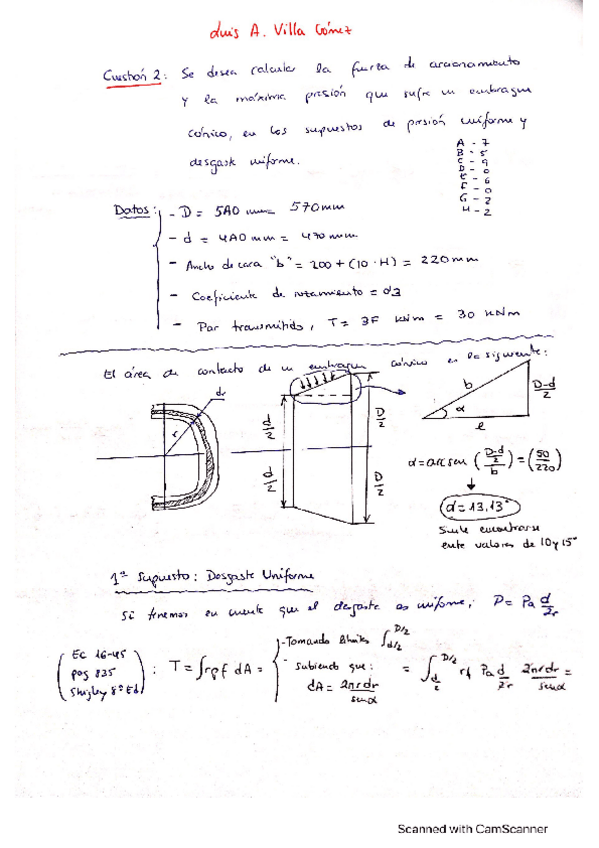 Luis A. Villa Gómez
Cuestión 2: Se desea calcular la fuerza de accionamiento
y la máxima presión que sufre un embrague
cónico, en los supuestos de presión uniforme y
desgaste uniforme.
A - 7
B - 5
C - 9
D - 0
E - 6
F - 0
G - 3
H - 2
Datos: - D = 5A0 mm = 570 mm
- d = 4A0 mm = 470 mm
- Ancho de cara "b" = 200 + (10·H) = 220 mm
- Coeficiente de rozamiento = 0'3
- Par transmitido, T = 3F kNm = 30 kNm
El área de contacto de un embrague cónico es la siguiente:
dr
r
d/2
d/2
D/2
D/2
b
D-d/2
α
e
α = arcsen ((D-d/2)/b) = (50/220)
α = 13,13°
Suele encontrarse
entre valores de 10 y 15°
1er Supuesto: Desgaste Uniforme
Si tenemos en cuenta que el desgaste es uniforme; P = Pa d/2r
(Ec 16-45
pag 835
Shigley 8ª Ed) : T = ∫rpf dA = {- Tomando límites ∫d/2 D/2
- sabiendo que:
dA = 2πrdr/senα
= ∫d/2 D/2 rf Pa d/2r 2πrdr/senα =
Scanned with CamScanner